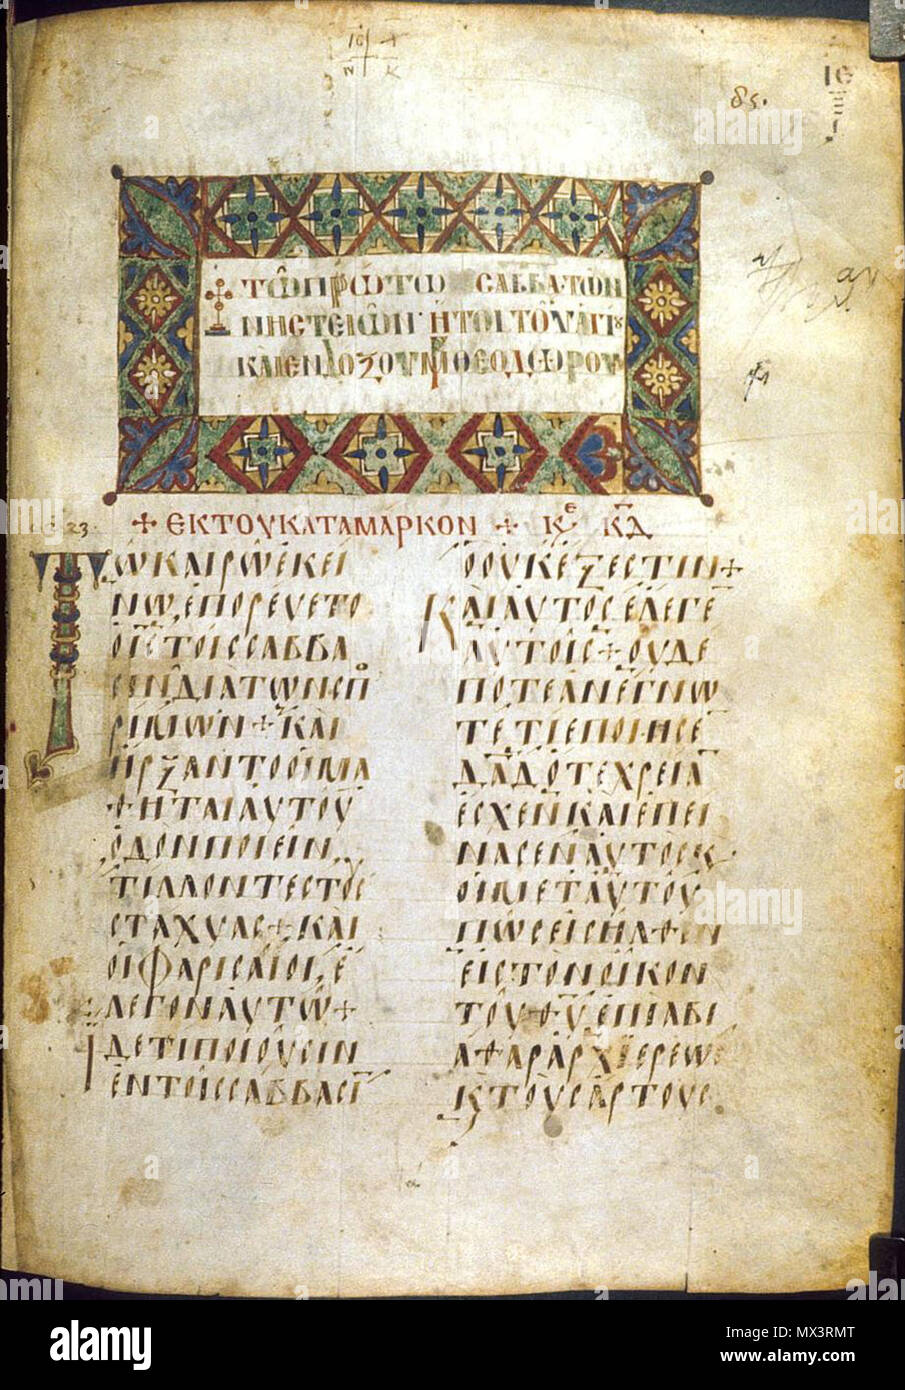 ΤΩ ΠΡΩΤΩ ΣΑΒΒΑΤΩ ΤΩΝ
ΝΗΣΤΕΙΩΝ ΗΤΟΙ ΤΟΥ ΑΓΙΟΥ
ΚΑΙ ΕΝΔΟΞΟΥ Μ ΘΕΟΔΩΡΟΥ
+ ΕΚ ΤΟΥ ΚΑΤΑ ΜΑΡΚΟΝ + ΚΕ ΚΔ
ΤΩ ΚΑΙΡΩ ΕΚΕΙ
ΝΩ, ΕΠΟΡΕΥΕΤΟ
Ο ΙΣ ΤΟΙΣ ΣΑΒΒΑ
ΣΙΝ ΔΙΑ ΤΩΝ ΣΠΟ
ΡΙΜΩΝ + ΚΑΙ
ΗΡΞΑΝΤΟ ΟΙ ΜΑ
ΘΗΤΑΙ ΑΥΤΟΥ
ΟΔΟΝ ΠΟΙΕΙΝ,
ΤΙΛΛΟΝΤΕΣ ΤΟΥΣ
ΣΤΑΧΥΑΣ + ΚΑΙ
ΟΙ ΦΑΡΙΣΑΙΟΙ, Ε
ΛΕΓΟΝ ΑΥΤΩ +
ΙΔΕ ΤΙ ΠΟΙΟΥΣΙΝ
ΕΝ ΤΟΙΣ ΣΑΒΒΑΣΙ
Ο ΟΥΚ ΕΞΕΣΤΙΝ +
ΚΑΙ ΑΥΤΟΣ ΕΛΕΓΕ
ΑΥΤΟΙΣ + ΟΥΔΕ
ΠΟΤΕ ΑΝΕΓΝΩ
ΤΕ ΤΙ ΕΠΟΙΗΣΕ
ΔΑΔ ΟΤΕ ΧΡΕΙΑ
ΕΣΧΕΝ ΚΑΙ ΕΠΕΙ
ΝΑΣΕΝ ΑΥΤΟΣ Κ
ΟΙ ΜΕΤ ΑΥΤΟΥ
ΠΩΣ ΕΙΣΗΛΘΕΝ
ΕΙΣ ΤΟΝ ΟΙΚΟΝ
ΤΟΥ ΘΥ ΕΠΙ ΑΒΙ
ΑΘΑΡ ΑΡΧΙΕΡΕΩΣ
Κ ΤΟΥΣ ΑΡΤΟΥΣ
85.
alamy
Image ID: MX3RMT
www.alamy.com